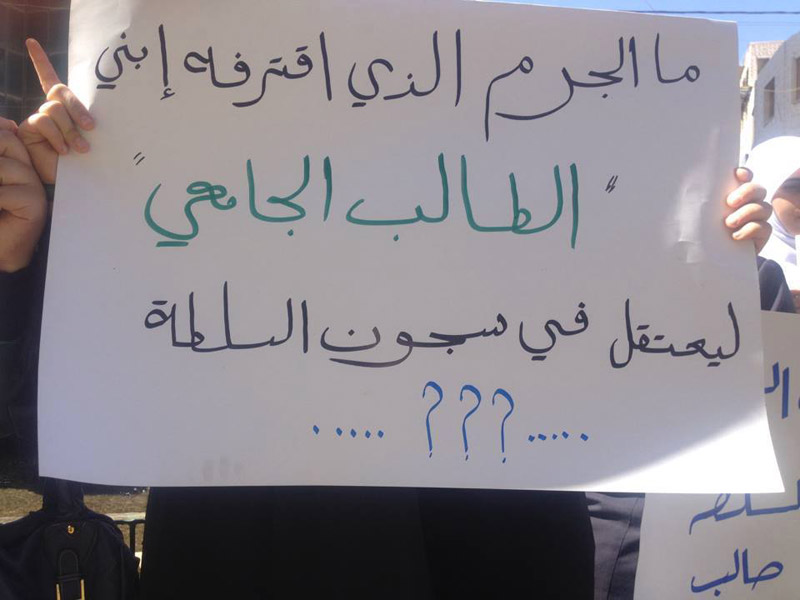 ما الجرم الذي اقترفه إبني
"الطالب الجامعي"
ليعتقل في سجون السلطة
.....؟؟؟.....
طالب